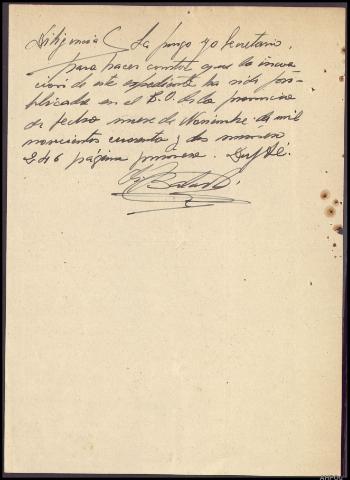 Diligencia La pongo yo Secretario,
para hacer constar que la incoa
cion de este expediente ha sido pu-
blicada en el B.O. de la provincia
de fecha nueve de Noviembre de mil
novecientos cuarenta y dos número
246 página primera. Doy fé.